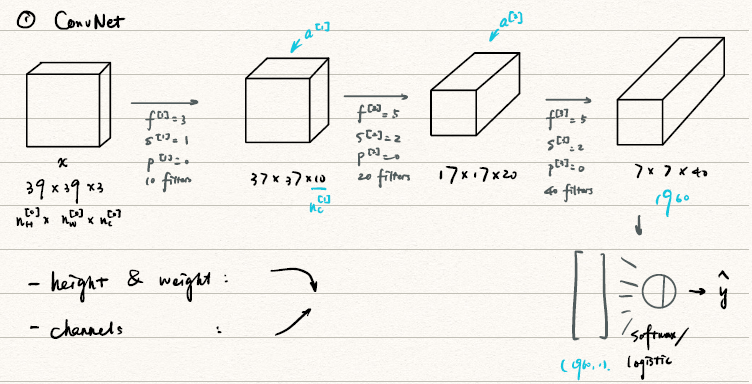 ① ConvNet
a[1]
a[2]
f[1]=3
s[1]=1
p[1]=0
10 filters
f[2]=5
s[2]=2
p[2]=0
20 filters
f[3]=5
s[3]=2
p[3]=0
40 filters
x
39 x 39 x 3
n_H[0] x n_W[0] x n_C[0]
37 x 37 x 10
n_C[1]
17 x 17 x 20
7 x 7 x 40
1960
- height & weight :
- channels :
ŷ
softmax/
logistic
(1960,1).